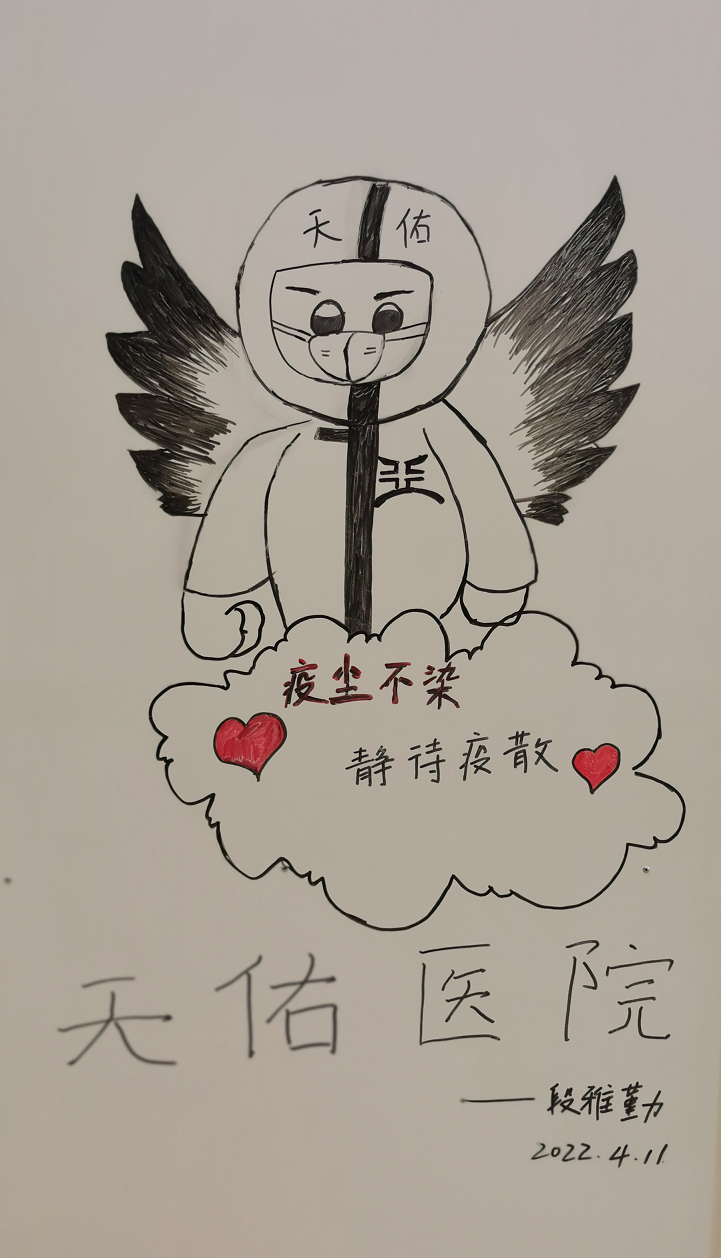 天佑
疫尘不染
静待疫散
天佑医院
——段雅勤
2022.4.11